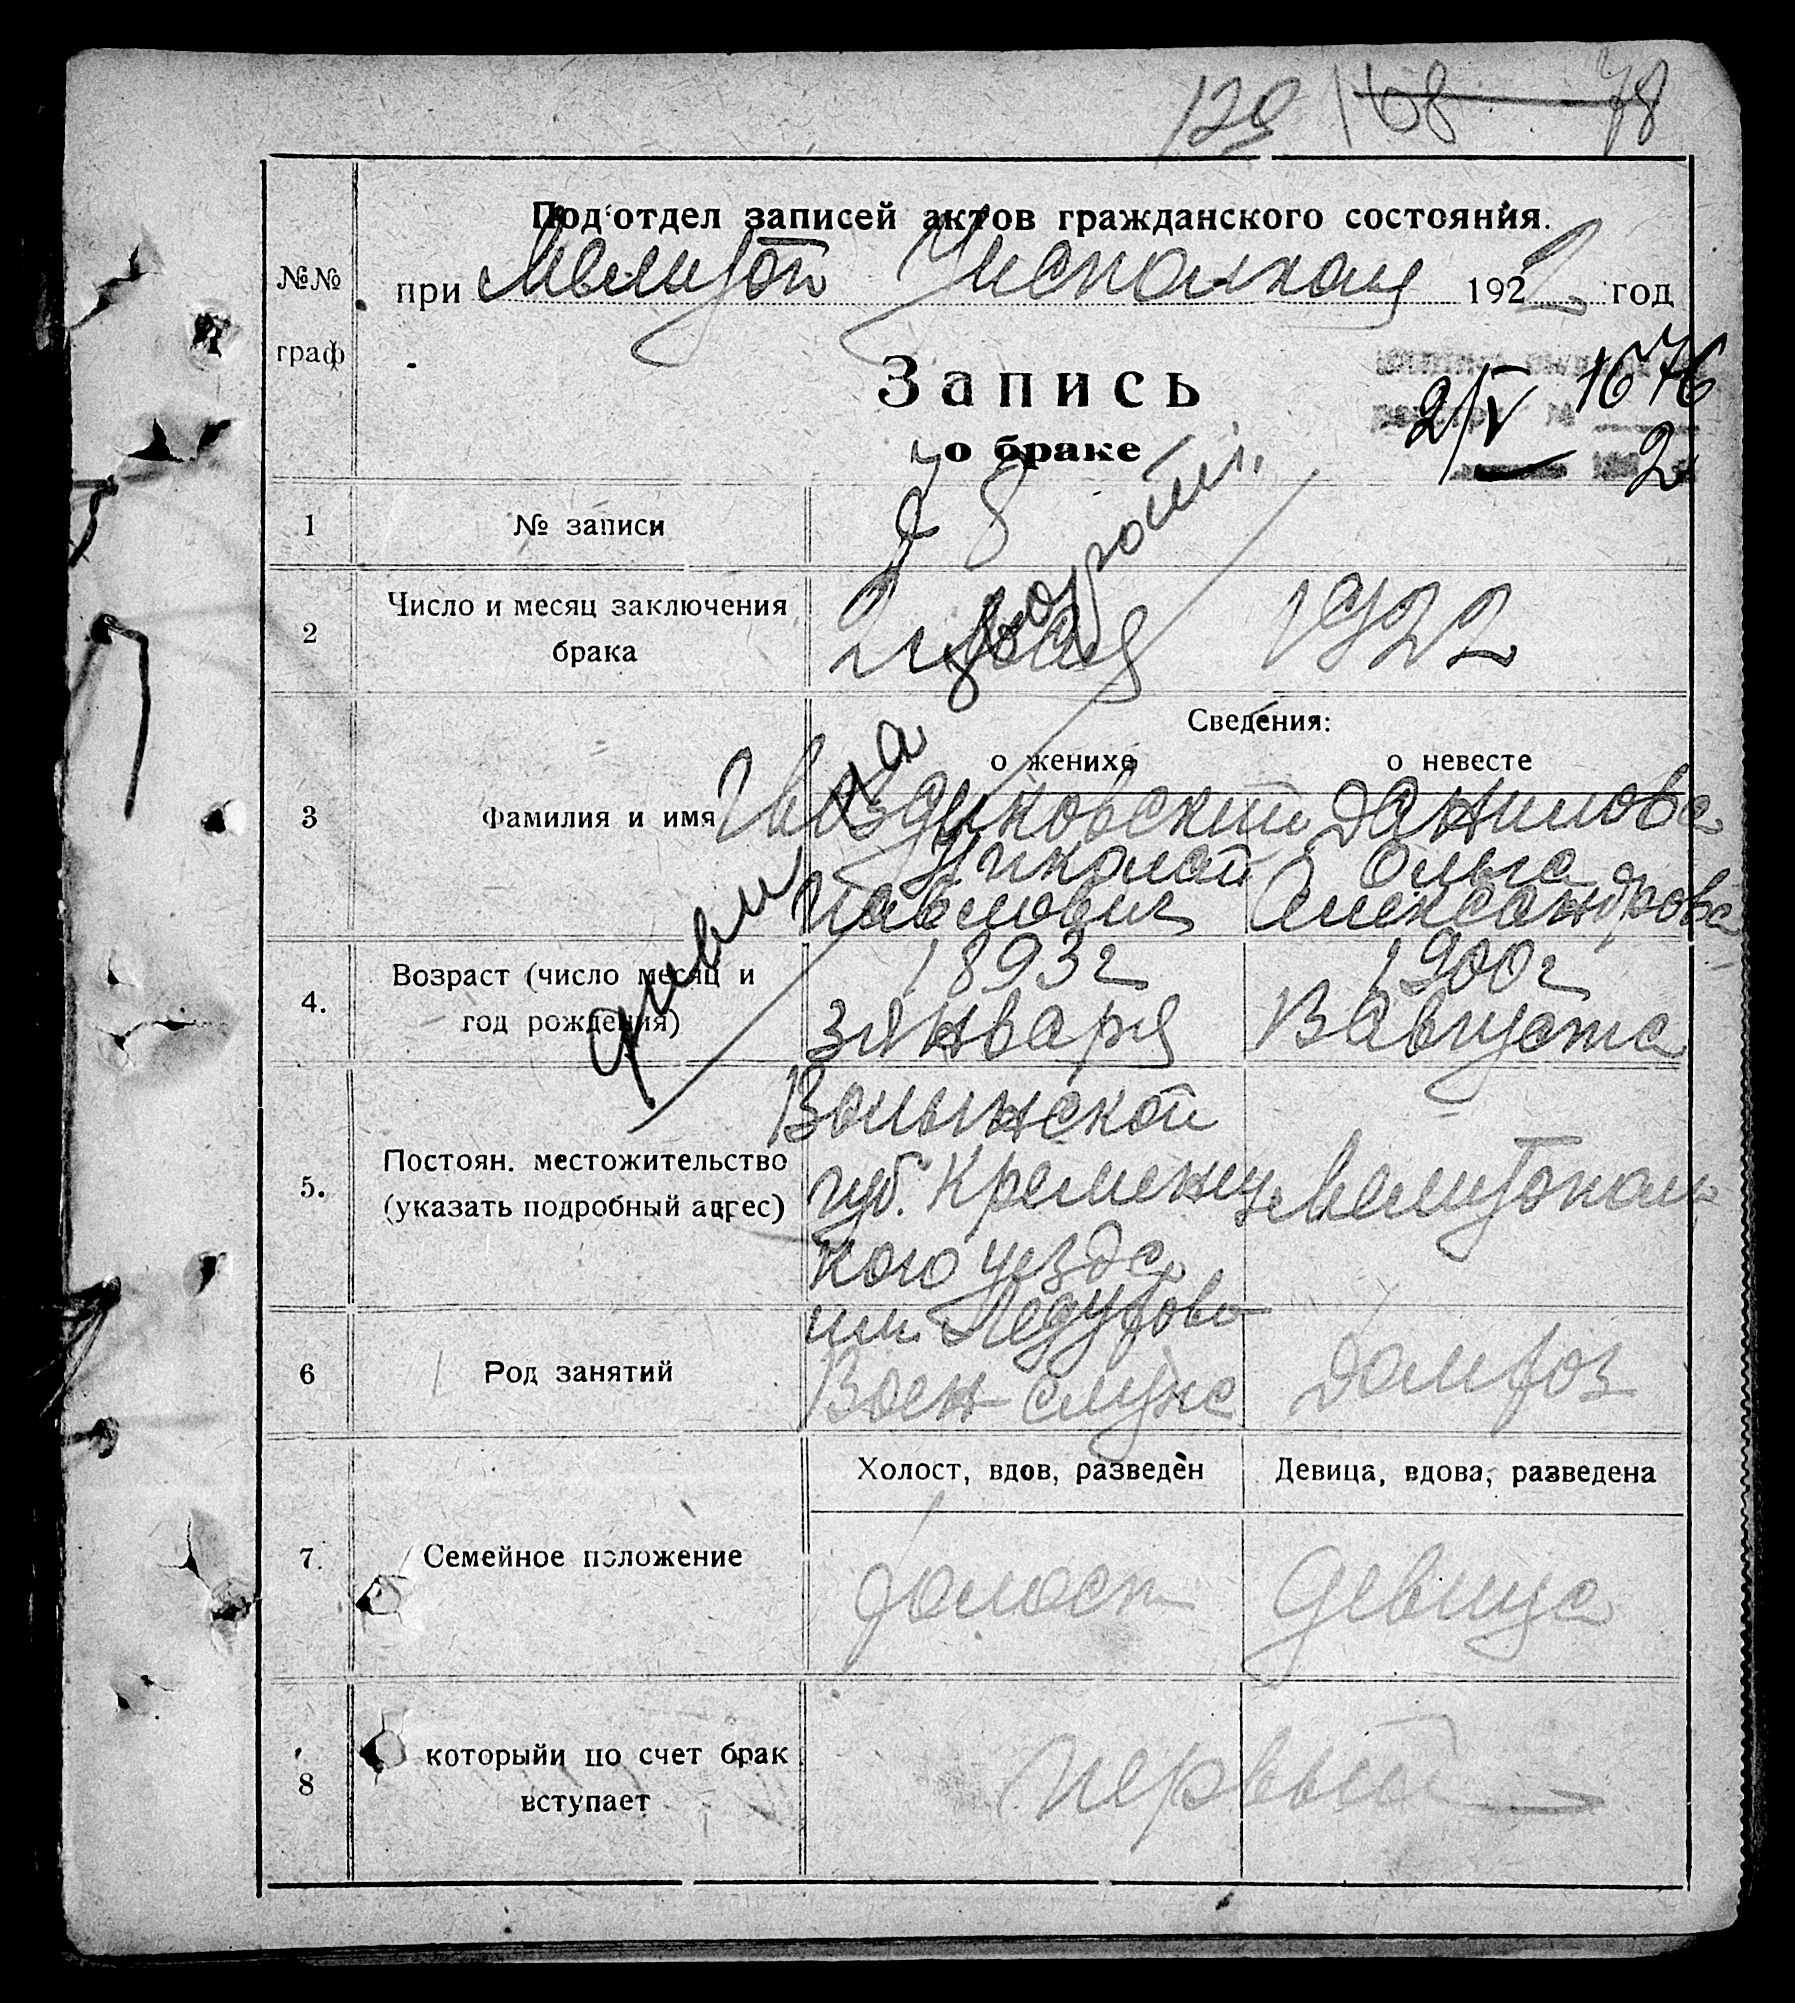 129 168 78
Подотдел записей актов гражданского состояния.
№№
граф
при Мелитоп Уисполком 1922 год
Запись
о браке
2/V 1676
2
1 № записи 78
2 Число и месяц заключения
брака
2 мая 1922
Сведения:
о женихе о невесте
3 Фамилия и имя Гвоздиковский Данилова
Николай Ольга
Павлович Александровна
4. Возраст (число месяц и
год рождения)
1893г 1900г
3 января 3 августа
5. Постоян. местожительство
(указать подробный адрес)
Волынской
губ. Кременец Мелитополь
кого уезда
6 Род занятий
Воен служ Домхоз
Холост, вдов, разведен Девица, вдова, разведена
7. Семейное положение холост девица
8 которыйи по счет брак
вступает
первый